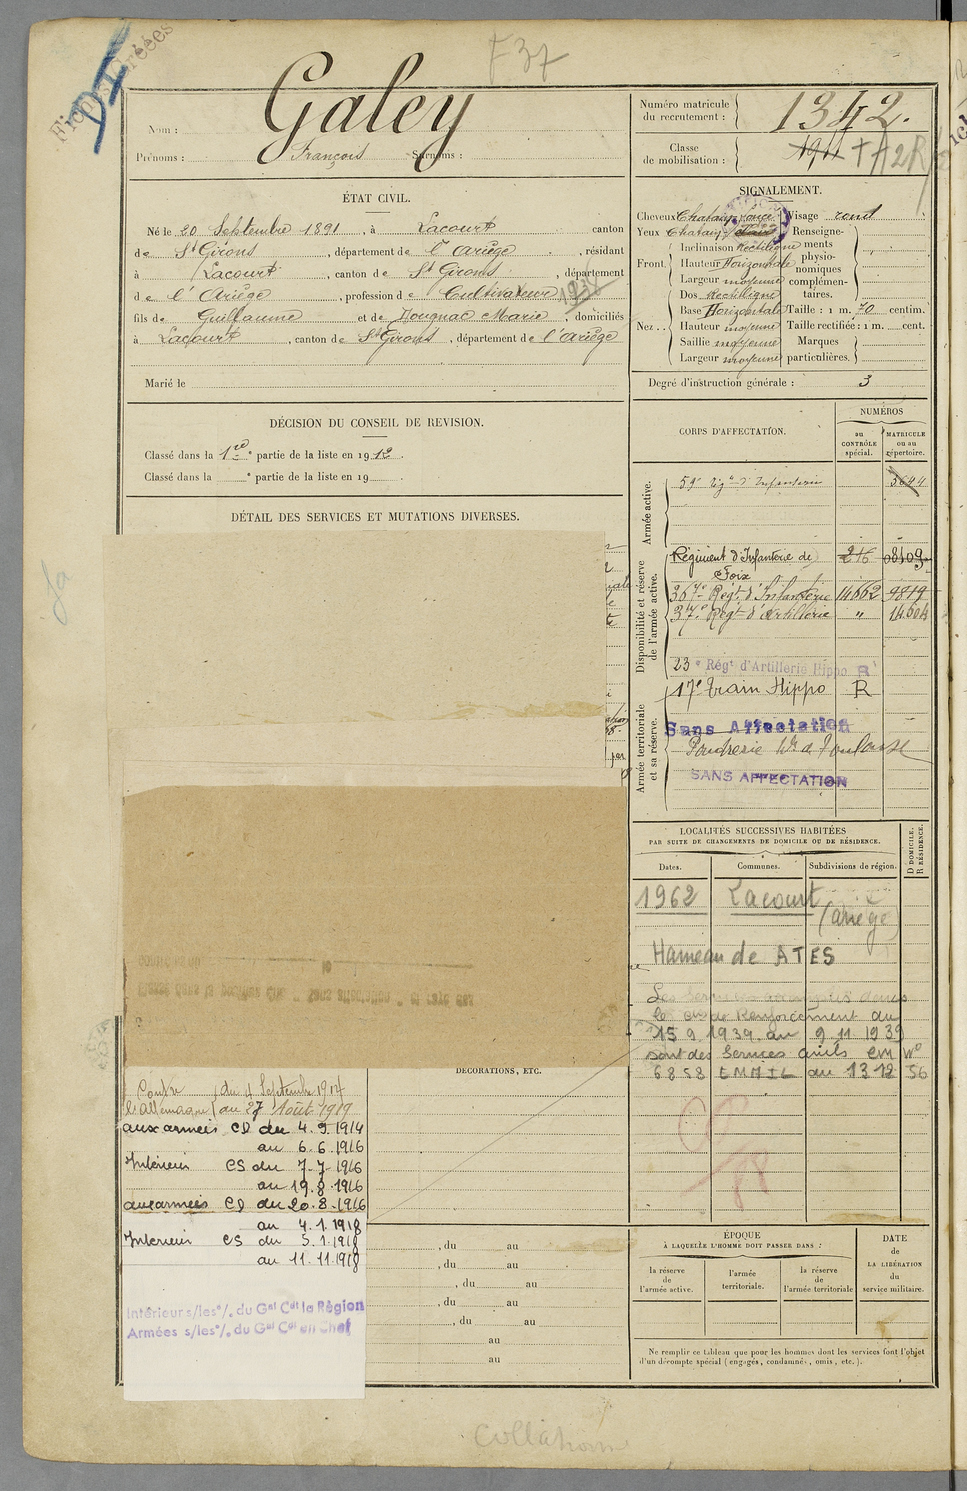 F 37
Fiches Créées
Nom : Galey
Prénoms : François Surnoms :
Numéro matricule du recrutement : 1342.
Classe de mobilisation : 1911
ÉTAT CIVIL.
Né le 20 Septembre 1891, à Lacourt canton
de St Girons, département de l'Ariège, résidant
à Lacourt, canton de St Girons, département
de l'Ariège, profession de Cultivateur
fils de Guillaume et de Dougnac Marie, domiciliés
à Lacourt, canton de St Girons, département de l'Ariège
Marié le
SIGNALEMENT.
Cheveux Chatain Visage rond
Yeux Chatain
Front. Inclinaison Rectiligne
Hauteur Horizontale
Largeur moyenne
Nez . . Dos Rectiligne
Base Horizontale
Hauteur moyenne
Saillie moyenne
Largeur moyenne
Renseignements physionomiques complémentaires.
Taille : 1 m. 70 centim.
Taille rectifiée : 1 m. cent.
Marques particulières.
Degré d'instruction générale : 3
DÉCISION DU CONSEIL DE REVISION.
Classé dans la 1re partie de la liste en 1912.
Classé dans la e partie de la liste en 19
DÉTAIL DES SERVICES ET MUTATIONS DIVERSES.
CORPS D'AFFECTATION.
NUMÉROS
au CONTRÔLE spécial.
MATRICULE ou au répertoire.
Armée active.
59e Régt d'Infanterie
Disponibilité et réserve de l'armée active.
Régiment d'Infanterie de Foix 216 08109
367e Régt d'Infanterie 14662 9819
37e Régt d'Artillerie " 14604
23e Régt d'Artillerie Hippo R
Armée territoriale et sa réserve.
17e Train Hippo R
Sans Affectation
Poudrerie Nle de Toulouse
SANS AFFECTATION
LOCALITÉS SUCCESSIVES HABITÉES
PAR SUITE DE CHANGEMENTS DE DOMICILE OU DE RÉSIDENCE.
Dates. Communes. Subdivisions de région. D DOMICILE. R RÉSIDENCE.
1962 Lacourt (Ariège)
Hameau de ATES
Les services accomplis dans
le de Renforcement du
15 9 1939 au 9 11 1939
sont des Services civils CM N°
6858 EMMIL du 13 12 56
Classé dans la position dite "Sans affectation" et rayé des
contrôles du le
DÉCORATIONS, ETC.
Contre l'Allemagne du 4 Septembre 1914
au 27 Août 1919
aux armées CD du 4.9.1914
au 6.6.1916
Intérieur CS du 7.7.1916
au 19.8.1916
aux armées CD du 20.8.1916
au 4.1.1918
Intérieur CS du 5.1.1918
au 11.11.1918
Intérieur s/les °/. du Gal Cdt la Région
Armées s/les °/. du Gal Cdt en Chef
, du au
, du au
, du au
, du au
, du au
au
au
ÉPOQUE
À LAQUELLE L'HOMME DOIT PASSER DANS :
la réserve de l'armée active.
l'armée territoriale.
la réserve de l'armée territoriale
DATE de LA LIBÉRATION du service militaire.
Ne remplir ce tableau que pour les hommes dont les services font l'objet
d'un décompte spécial (engagés, condamnés, omis, etc.).